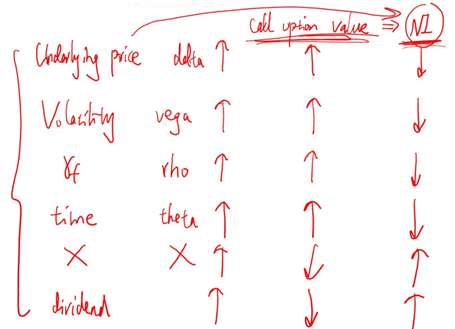 Call option value ⇒ NI
Underlying price delta ↑ ↑ ↓
Volatility vega ↑ ↑ ↓
rf rho ↑ ↑ ↓
time theta ↑ ↑ ↓
X X ↑ ↓ ↑
dividend ↑ ↓ ↑